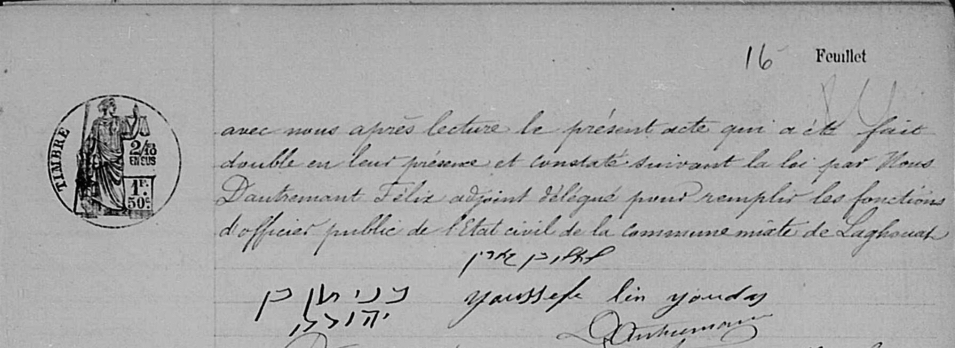 16 Feuillet
TIMBRE
2/10
EN SUS
1F.
50c.
avec nous après lecture le présent acte qui a été fait
double en leur présence et constaté suivant la loi par Nous
Dautremant Félix adjoint délégué pour remplir les fonctions
d'officier public de l'Etat civil de la commune mixte de Laghouat
Youssefe bin Youdas
Dautremant